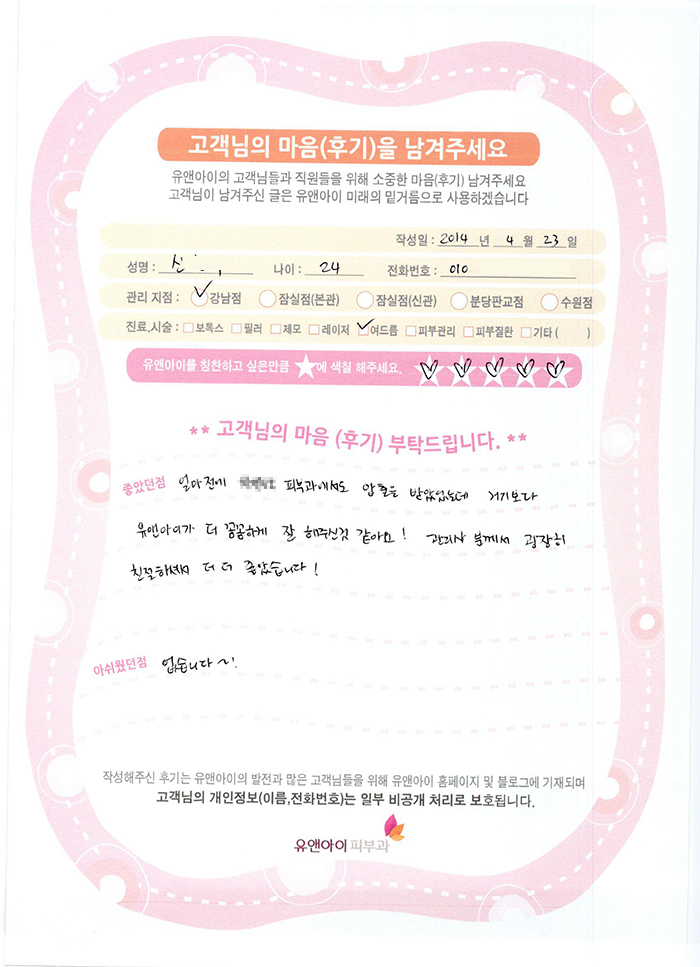 고객님의 마음(후기)을 남겨주세요
유앤아이의 고객님들과 직원들을 위해 소중한 마음(후기) 남겨주세요
고객님이 남겨주신 글은 유앤아이 미래의 밑거름으로 사용하겠습니다
작성일 : 2014 년 4 월 23 일
성명 : 신 나이 : 24 전화번호 : 010
관리 지점 : 강남점 잠실점(본관) 잠실점(신관) 분당판교점 수원점
진료,시술 : 보톡스 필러 제모 레이저 여드름 피부관리 피부질환 기타 ( )
유앤아이를 칭찬하고 싶은만큼 ★에 색칠 해주세요.
** 고객님의 마음 (후기) 부탁드립니다. **
좋았던점 얼마전에 피부과에서도 압출을 받았었는데 거기보다
유앤아이가 더 꼼꼼하게 잘 해주신것 같아요! 관리사 분께서 굉장히
친절하셔서 더 더 좋았습니다!
아쉬웠던점 없습니다~!
작성해주신 후기는 유앤아이의 발전과 많은 고객님들을 위해 유앤아이 홈페이지 및 블로그에 기재되며
고객님의 개인정보(이름,전화번호)는 일부 비공개 처리로 보호됩니다.
유앤아이피부과